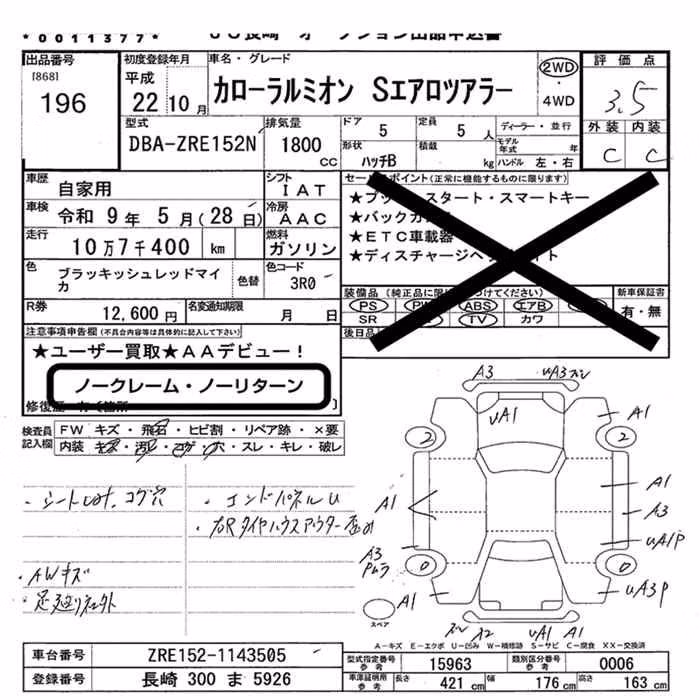 *0011377*
ＪＵ長崎 オークション出品申込書
出品番号
[868]
196
初度登録年月
平成
22 10月
車名・グレード
カローラルミオン SエアロツアラーW
2WD
・
4WD
評価点
3.5
外装 内装
C C
型式
DBA-ZRE152N
排気量
1800
CC
ドア 5
定員 5 人
ディーラー・並行
形状 ハッチB
積載 kg
モデル年式 年
ハンドル 左・右
車歴 自家用
シフト IAT
車検 令和 9年 5月(28日)
冷房 AAC
走行 10万7千400 km
燃料 ガソリン
色 ブラッキッシュレッドマイカ
色替
色コード 3R0
R券 12,600円
名変通知期限 月 日
セールスポイント(正常に機能するものに限ります)
★プッシュスタート・スマートキー
★バックカメラ
★ETC車載器
★ディスチャージヘッドライト
装備品(純正品に限り○をつけてください)
PS PW ABS エアB
SR TV カワ
後日品
新車保証書
有・無
注意事項申告欄(不具合内容等は具体的に記入して下さい)
★ユーザー買取★AAデビュー！
ノークレーム・ノーリターン
修復歴 有〔箇所 〕
検査員記入欄
FW キズ・飛石・ヒビ割・リペア跡・×要
内装 キズ・汚レ・コゲ・穴・スレ・キレ・破レ
・シートしみ. コゲ穴
・エンドパネルU
・右Rタイヤハウスアウター歪み
・AWキズ
・足廻りサビ
A3
uA3
uA1
A1
2
2
A1
A1
A3
uA1P
A3
Pムラ
0
0
A1
uA3P
A2
uA1
A1
スペア
A－キズ E－エクボ U－凹み W－補修跡 S－サビ C－腐食 XX－交換済
車台番号 ZRE152-1143505
登録番号 長崎 300 ま 5926
型式指定番号 参考 15963
類別区分番号 参考 0006
車庫証明用 参考 長さ 421 cm 幅 176 cm 高さ 163 cm